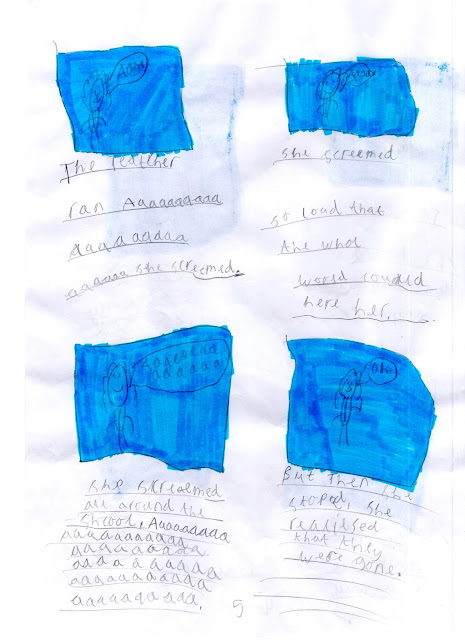 Aaaa
The teather
ran Aaaaaaaaaa
aaaaaadaa
aaaaaa she screemed.
Aaaa
she screemed
so loud that
the whol
world rould
here her.
she skreamed
all around the
shcool, Aaaaaaaaa
aaaaaaaaaaa
aaaaaaaaaa
aaaaaaaaaa
aaaaaaaaaaa
aaaaaaaaaa.
Oh!
But then she
stoped, she
realifsed
that they
were gone.
5